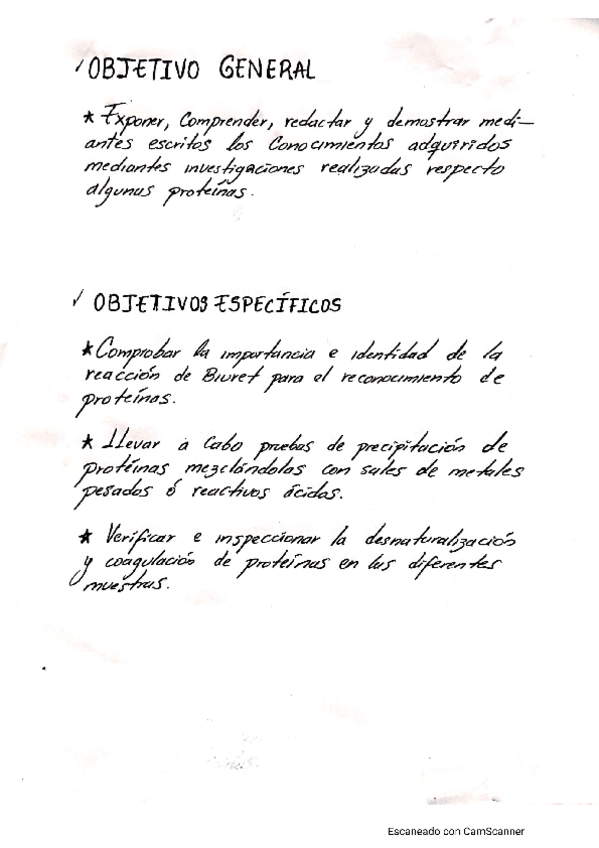 ✓OBJETIVO GENERAL
* Exponer, Comprender, redactar y demostrar medi-
antes escritos los Conocimientos adquiridos
mediantes investigaciones realizadas respecto
algunas proteínas.
✓ OBJETIVOS ESPECÍFICOS
*Comprobar la importancia e identidad de la
reacción de Biuret para el reconocimiento de
proteínas.
* Llevar a Cabo pruebas de precipitación de
protéinas mezclándolas con sales de metales
pesados ó reactivos ácidos.
* Verificar e inspeccionar la desnaturalización
y coagulación de proteínas en las diferentes
muestras.
Escaneado con CamScanner